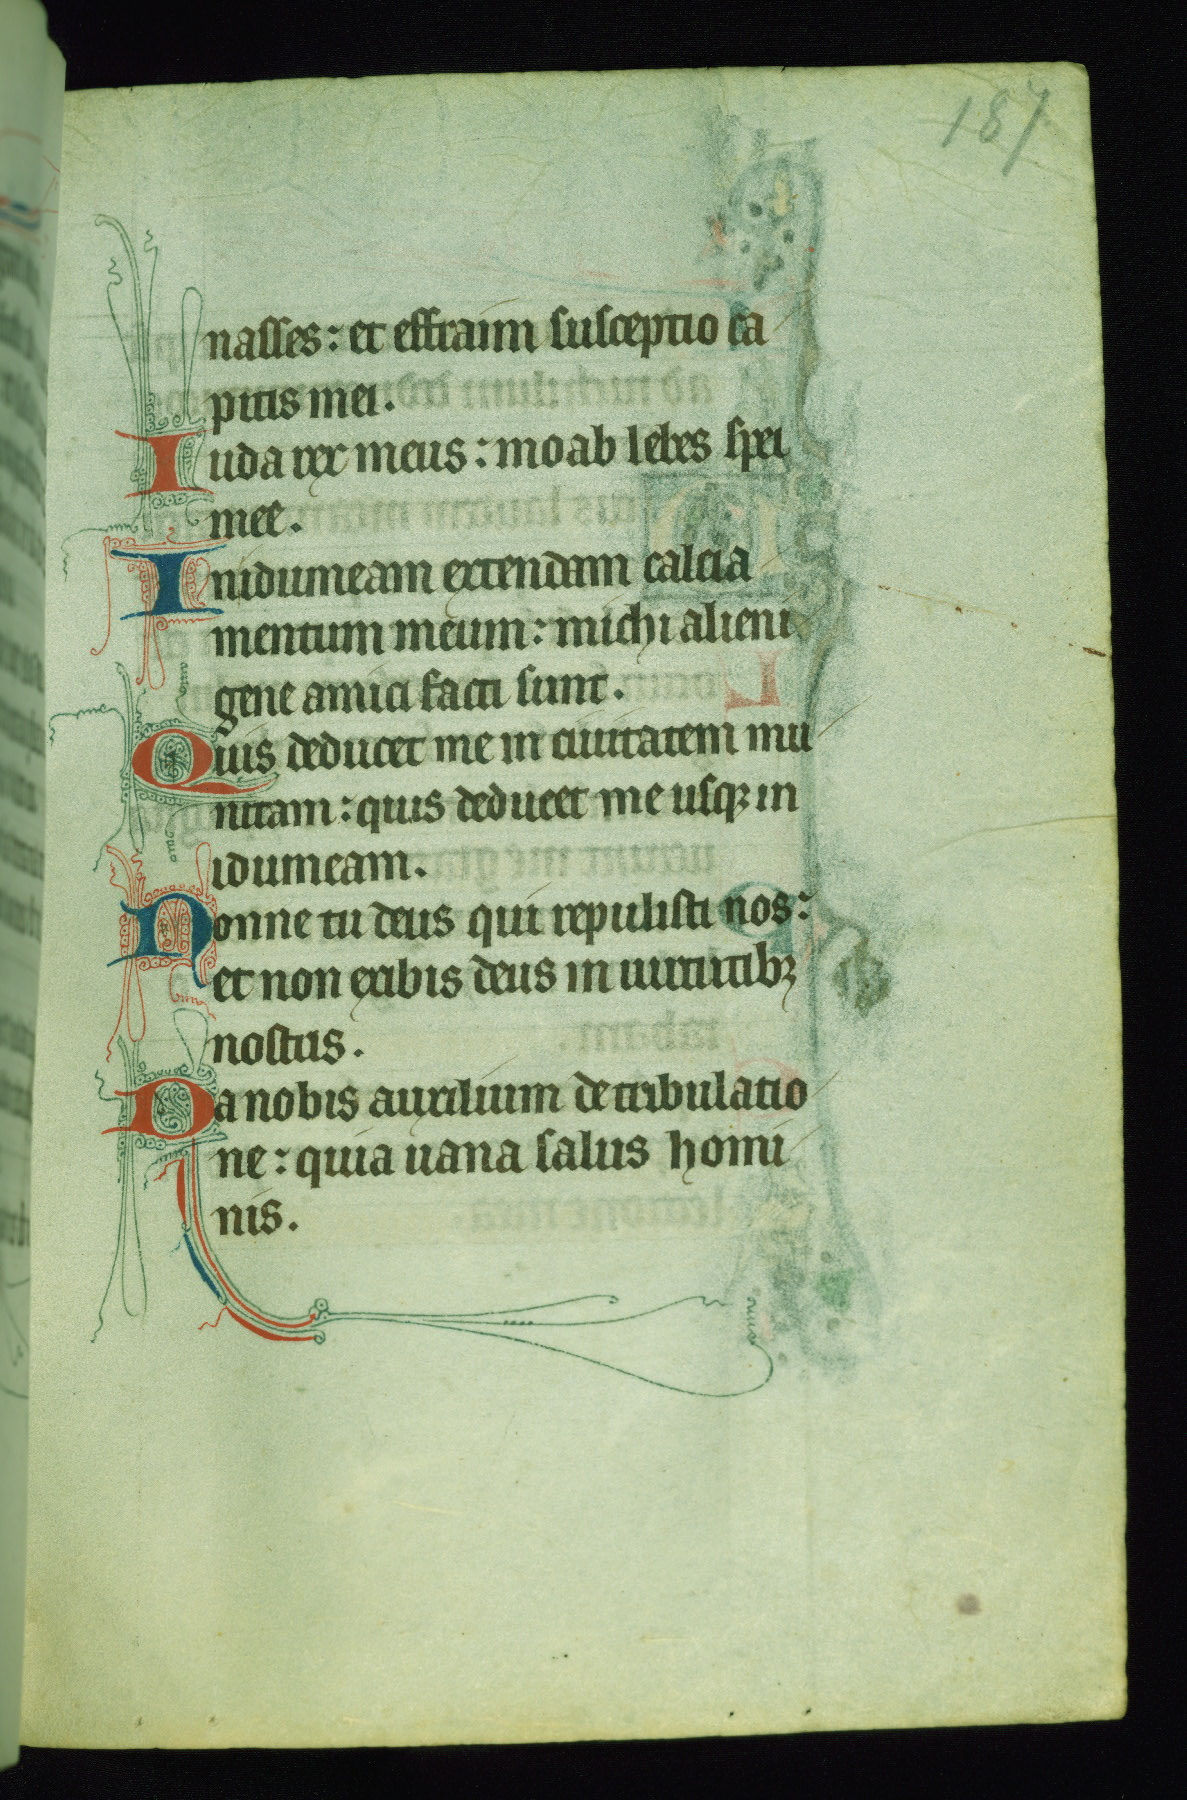 187
nasses: et effraim susceptio ca
pitis mei.
Iuda rex meus: moab lebes spei
mee.
Inidumeam extendam calcia
mentum meum: michi alieni
gene amici facti sunt.
Quis deducet me in ciuitatem mu
nitam: quis deducet me usqꝫ in
idumeam.
Nonne tu deus qui repulisti nos:
et non exibis deus in uirtutibꝫ
nostris.
Da nobis auxilium de tribulatio
ne: quia uana salus homi
nis.